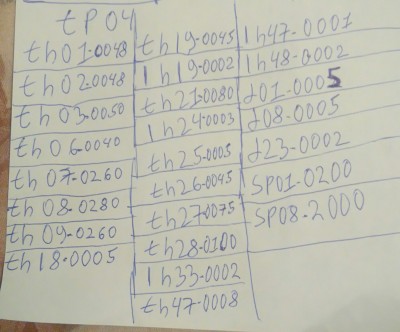 tP04
th01-0048
th02-0048
th03-0050
th06-0040
th07-0260
th08-0280
th09-0260
th18-0005
th19-0045
1h19-0002
th21-0080
1h24-0003
th25-0005
th26-0045
th27-0075
th28-0100
1h33-0002
th47-0008
1h47-0001
1h48-0002
d01-0005
d08-0005
d23-0002
SP01-0200
SP08-2000